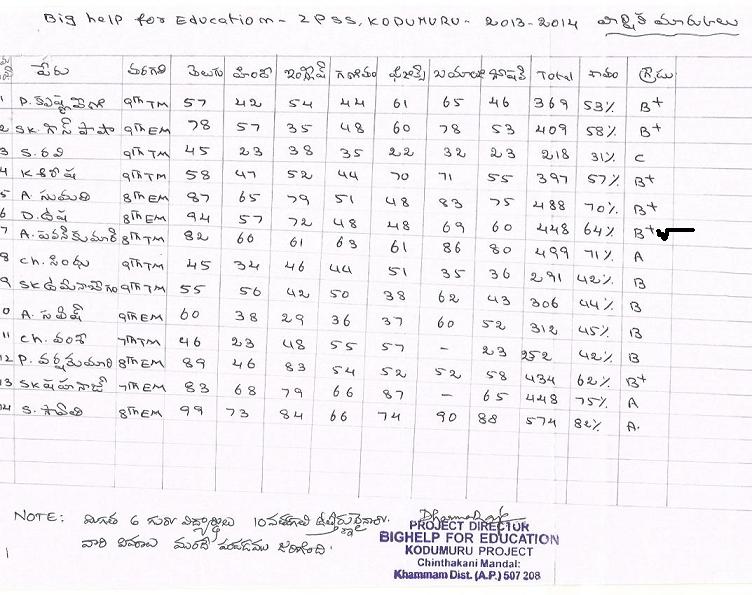 Big help for Education - ZPSS, KODUMURU - 2013-2014 వార్షిక మార్కులు
పేరు తరగతి తెలుగు హిందీ ఇంగ్లీష్ గణితం ఫిజిక్స్ బయాలజీ సోషల్ Total శాతం గ్రేడు
1 P. కృష్ణవేణి 9th TM 57 42 54 44 61 65 46 369 53% B+
2 SK. గౌస్ పాషా 9th EM 78 57 35 48 60 78 53 409 58% B+
3 S. రవి 9th TM 45 23 38 35 22 32 23 218 31% C
4 K. శిరీష 9th TM 58 47 52 44 70 71 55 397 57% B+
5 A. సుమతి 8th EM 87 65 79 51 48 83 75 488 70% B+
6 D. ఉష 8th EM 94 57 72 48 48 69 60 448 64% B+
7 A. పవన్ కుమార్ 8th TM 82 66 61 63 61 86 80 499 71% A
8 Ch. సింధు 9th TM 45 34 46 44 51 35 36 291 42% B
9 SK 9th TM 55 56 42 50 38 62 43 306 44% B
10 A. 9th EM 60 38 29 36 37 60 52 312 45% B
11 Ch. వంశీ 7th TM 46 23 48 55 57 - 23 252 42% B
12 P. 8th EM 89 46 83 54 52 52 58 434 62% B+
13 SK షహనాజ్ 7th EM 83 68 79 66 87 - 65 448 75% A
14 S. 8th EM 99 73 84 66 74 90 88 574 82% A.
NOTE: మిగతా 6 గురు విద్యార్థులు 10వ తరగతి
వారి వివరాలు జరిగింది.
PROJECT DIRECTOR
BIGHELP FOR EDUCATION
KODUMURU PROJECT
Chinthakani Mandal:
Khammam Dist. (A.P.) 507 208